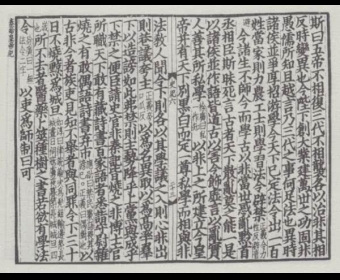 斯曰五帝不相復三代不相襲各以治非其相
反時變異也今陛下創大業建萬世之功固非
愚儒所知且越言乃三代之事何足法也異時
諸侯並爭厚招游學今天下已定法令出一百
姓當家則力農工士則學習法令辟禁
今諸生不師今而學古以非當世惑亂黔首
丞相臣斯昧死言古者天下散亂莫之能一是
以諸侯並作語皆道古以害今飾虛言以亂實
人善其所私學以非上之所建立今皇
帝并有天下別黑白而定一尊私學而相與非
法教人聞令下則各以其學議之入則心非出
則巷議夸主以為名異取以為高率群
下以造謗如此弗禁則主勢降乎上黨與成乎
下禁之便臣請史官非秦記皆燒之非博士官
所職天下敢有藏詩書百家語者悉詣守尉雜
燒之有敢偶語詩書棄市以
古非今者族吏見知不舉者與同罪令下三十
日不燒黥為城旦
所不去者醫藥卜筮種樹之書若欲有學法
令以吏為師制曰可